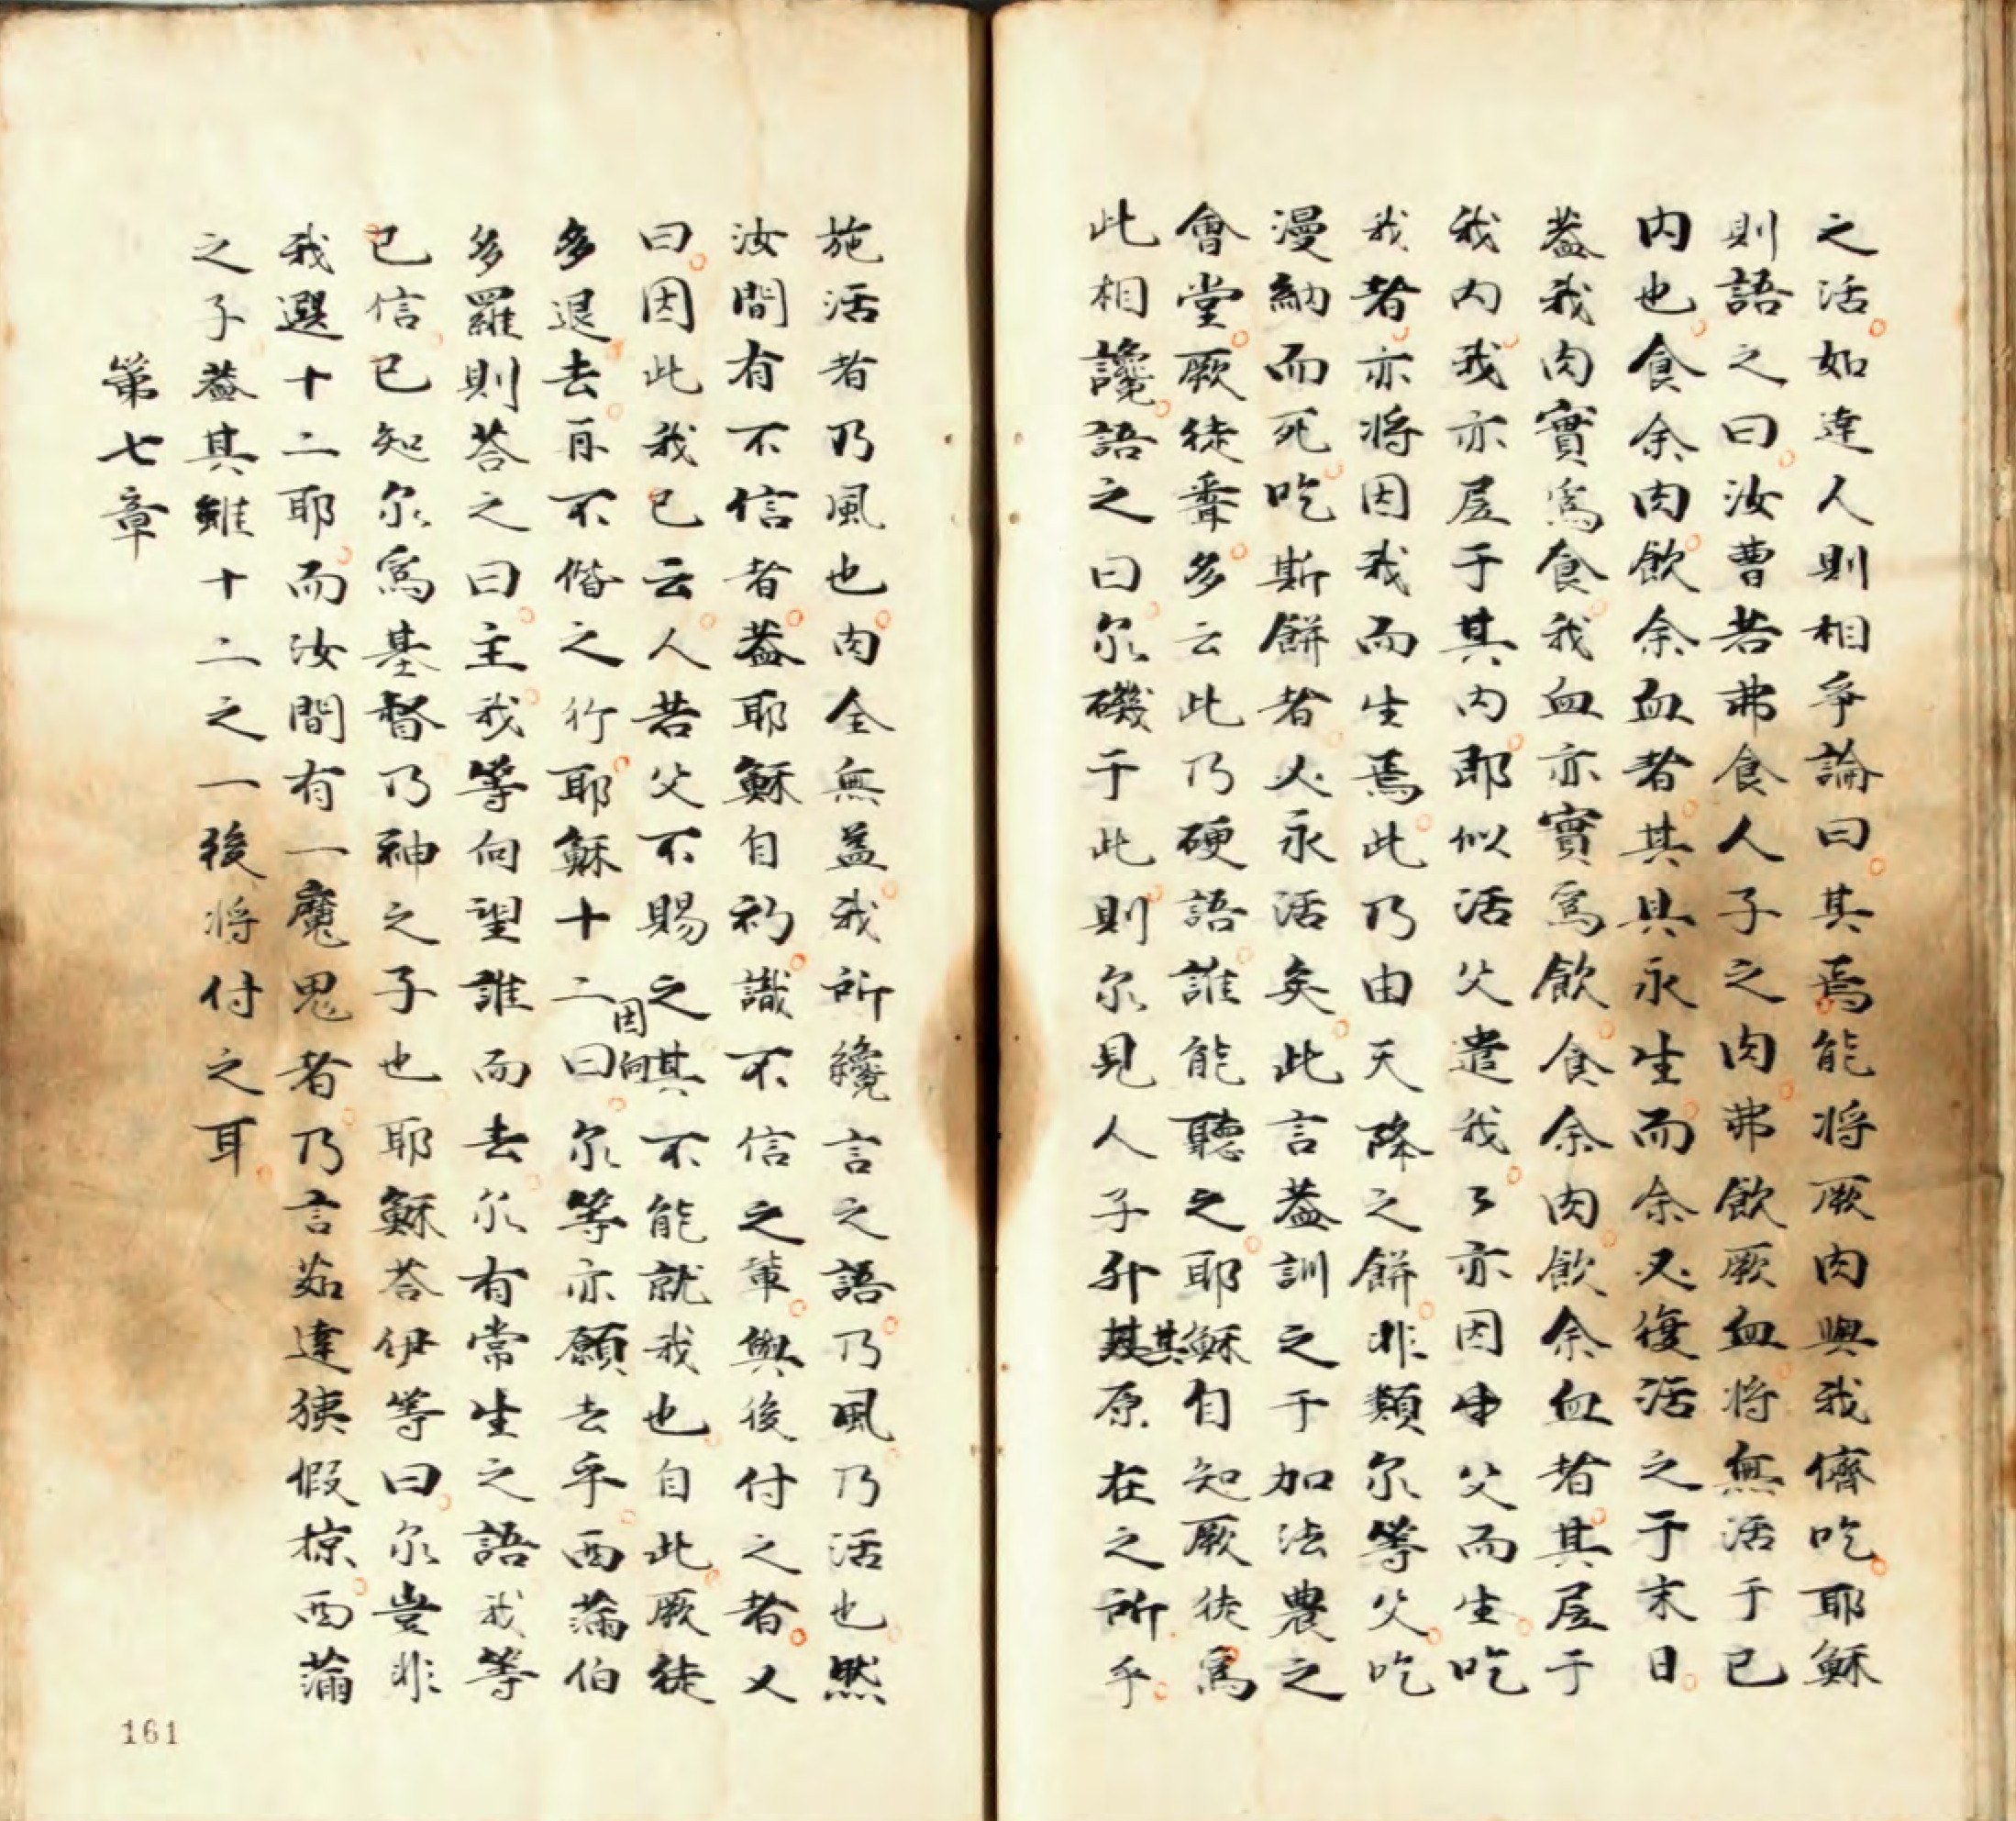 之活如達人則相爭論曰其焉能將厥肉與我儕吃耶穌
則語之曰汝曹若弗食人子之肉弗飲厥血將無活于己
內也食余肉飲余血者其具永生而余必復活之于末日
蓋我肉實為食我血亦實為飲食余肉飲余血者其居于
我內我亦居于其內即似活父遣我〻亦因由父而生吃
我者亦將因我而生焉此乃由天降之餅非類尔等父吃
漫納而死吃斯餅者必永活矣此言蓋訓之于加法農之
會堂厥徒聽多云此乃硬語誰能聽之耶穌自知厥徒為
此相讒語之曰尔磯于此則尔見人子升其原在之所乎
施活者乃風也肉全無益我所纔言之語乃風乃活也然
汝間有不信者蓋耶穌自初識不信之輩與後付之者又
曰因此我已云人若父不賜之其不能就我也自此厥徒
多退去再不偕之行耶穌因向十二曰尔等亦願去乎西滿伯
多羅則答之曰主我等向望誰而去尔有常生之語我等
已信已知尔為基督乃神之子也耶穌答伊等曰尔豈非
我選十二耶而汝間有一魔鬼者乃言茹達猿假掠西滿
之子蓋其雖十二之一後將付之耳
第七章
161